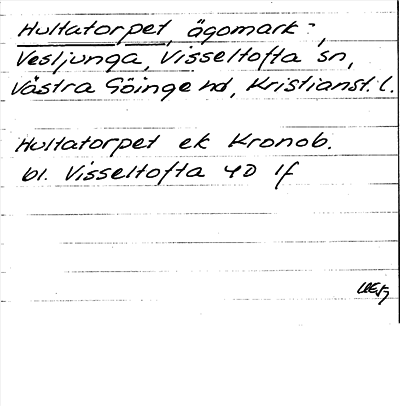 Hultatorpet, ägomark-,
Vesljunga, Visseltofta sn,
Västra Göinge hd, Kristianst. l.
Hultatorpet ek Kronob.
bl. Visseltofta 4D 1f